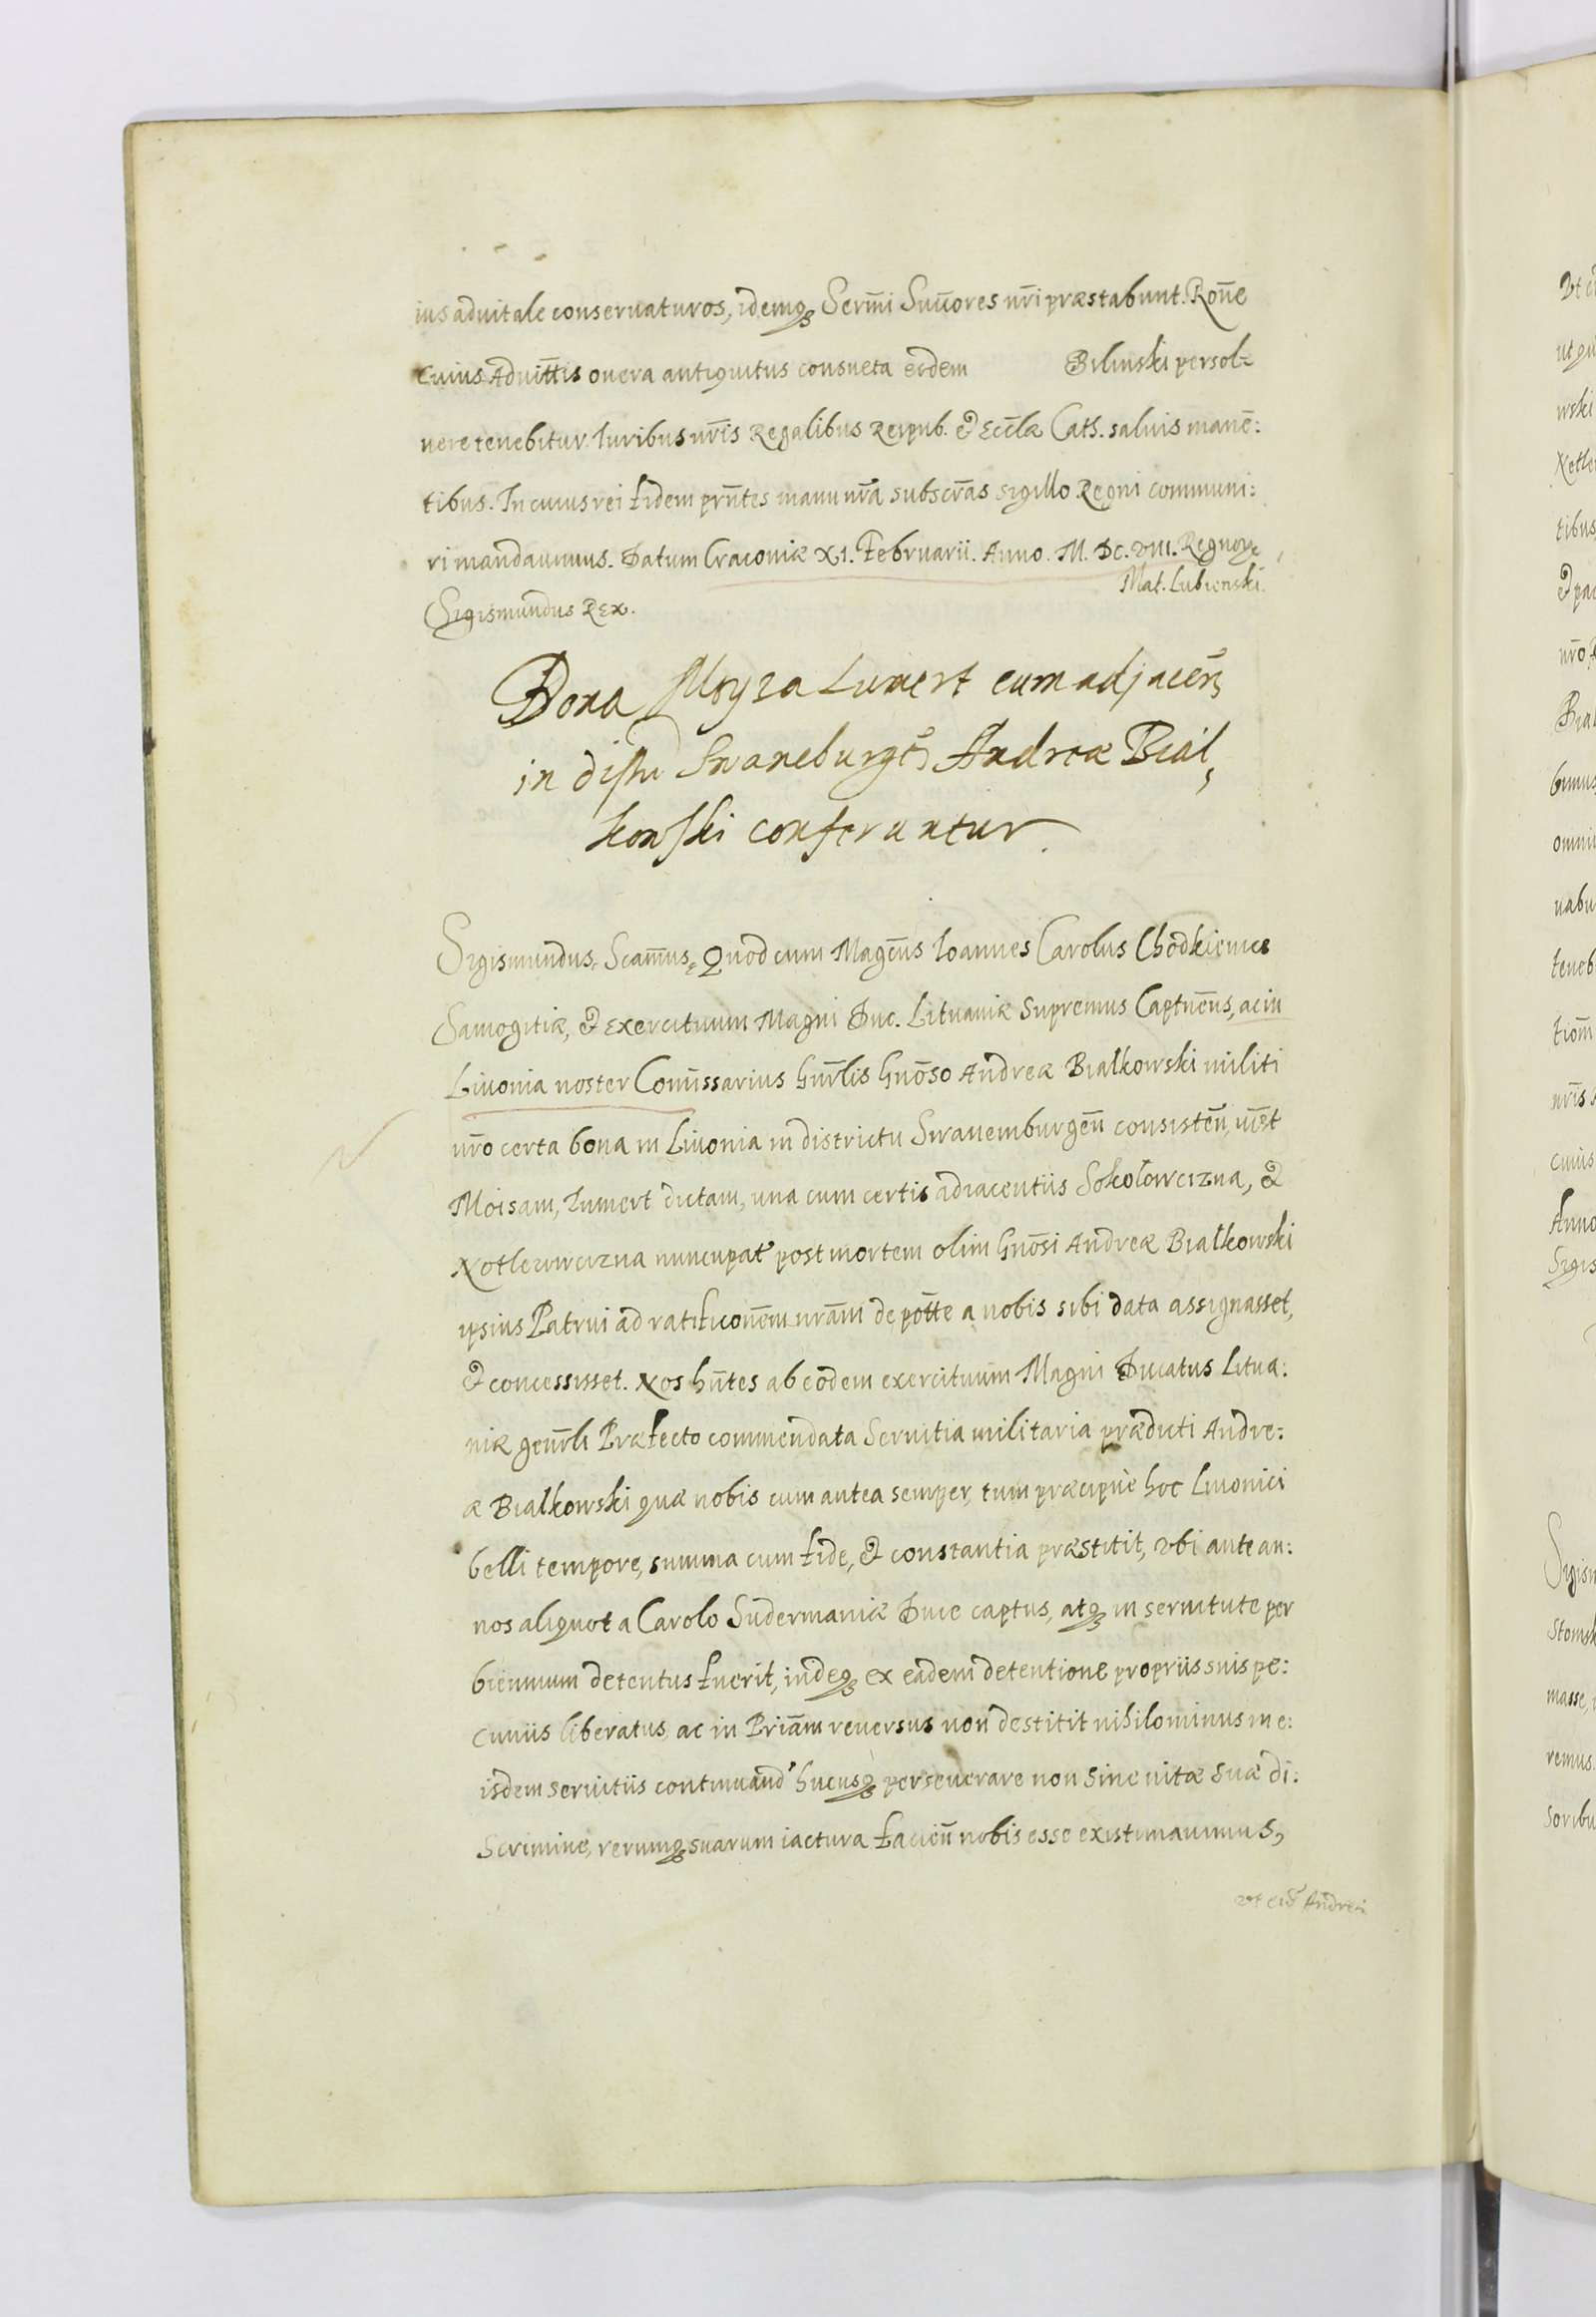 ius aduitale conseruaturos, idemq₃ Serm̄i Succ̄ores nr̄i præstabunt. Rōne
cuius Aduitt̄is onera antiquitus consueta eidem Bilinski persol=
uere tenebitur. Iuribus nr̄is Regalibus Reipub. & Eccl̄æ Cath. saluis manē:
tibus. In cuius rei fidem prn̄tes manu nr̄a subscr̄as sigillo Regni communi:
ri mandauimus. Datum Cracouiæ XI. Februarii. Anno. M. DC. VIII. Regnorꝝ
Mat. Lubienski.
Sigismundus Rex.
Bona Moyza Lumert cum adjacen̄
in distri Swaneburgen̄ Andreæ Bial,
kowski conferuntur.
Sigismundus, Scam̄us, Quod cum Magc̄us Ioannes Carolus Chodkieuice
Samogitiæ, & Exercituum Magni Duc. Lituaniæ Supremus Captn̄eus, ac in
Liuonia noster Com̄issarius Gnr̄lis Gnōso Andreæ Białkowski militi
nr̄o certa bona in Liuonia in districtu Swanemburgen̄ consisten̄, uīdet
Moisam, Lumert dictam, una cum certis adiacentiis Sokołowcizna, &
Kotlerowcizna nuncupat̄ post mortem olim Gnōsi Andreæ Białkowski
ipsius Patrui ad ratificōnem nrām de pōtte a nobis sibi data assignasset,
& concessisset. Nos hn̄tes ab eodem exercituum Magni Ducatus Litua:
niæ genrl̄i Præfecto commendata Seruitia militaria prædicti Andre:
æ Białkowski quæ nobis cum antea semper, tum præcipuè hoc Liuonici
belli tempore, summa cum fide, & constantia præstitit, vbi ante an:
nos aliquot a Carolo Sudermaniæ Duce captus, atq₃ in seruitute per
biennium detentus fuerit, indeq₃ ex eadem detentione propriis suis pe:
cuniis liberatus, ac in Priām reuersus non destitit nihilominus in e:
isdem seruitiis continuand̓ hucusq₃ perseuerare non sine uitæ suæ di:
scrimine, rerumq₃ suarum iactura facien̄ nobis esse existimauimus,
vt eid̓ Andreæ